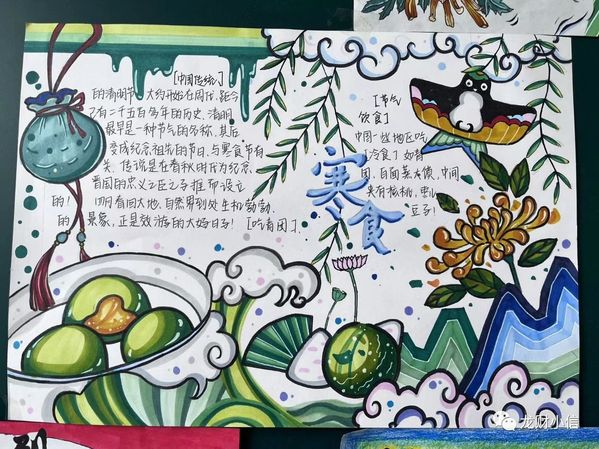 [中国传统]
的清明节,大约开始在周代,距今
已有二千五百多年的历史,清明
最早是一种节气的名称,其后
变成纪念祖先的节日,与寒食节有
关,传说是在春秋时代为纪念
晋国的忠义之臣介子推而设立
的!
四月春回大地,自然界到处生机勃勃
的景象,正是效游的大好日子!
[节气
饮食]
中国一些地区吃
[冷食]
团,中间
夹有核桃,
豆子!
寒食
龙财小信